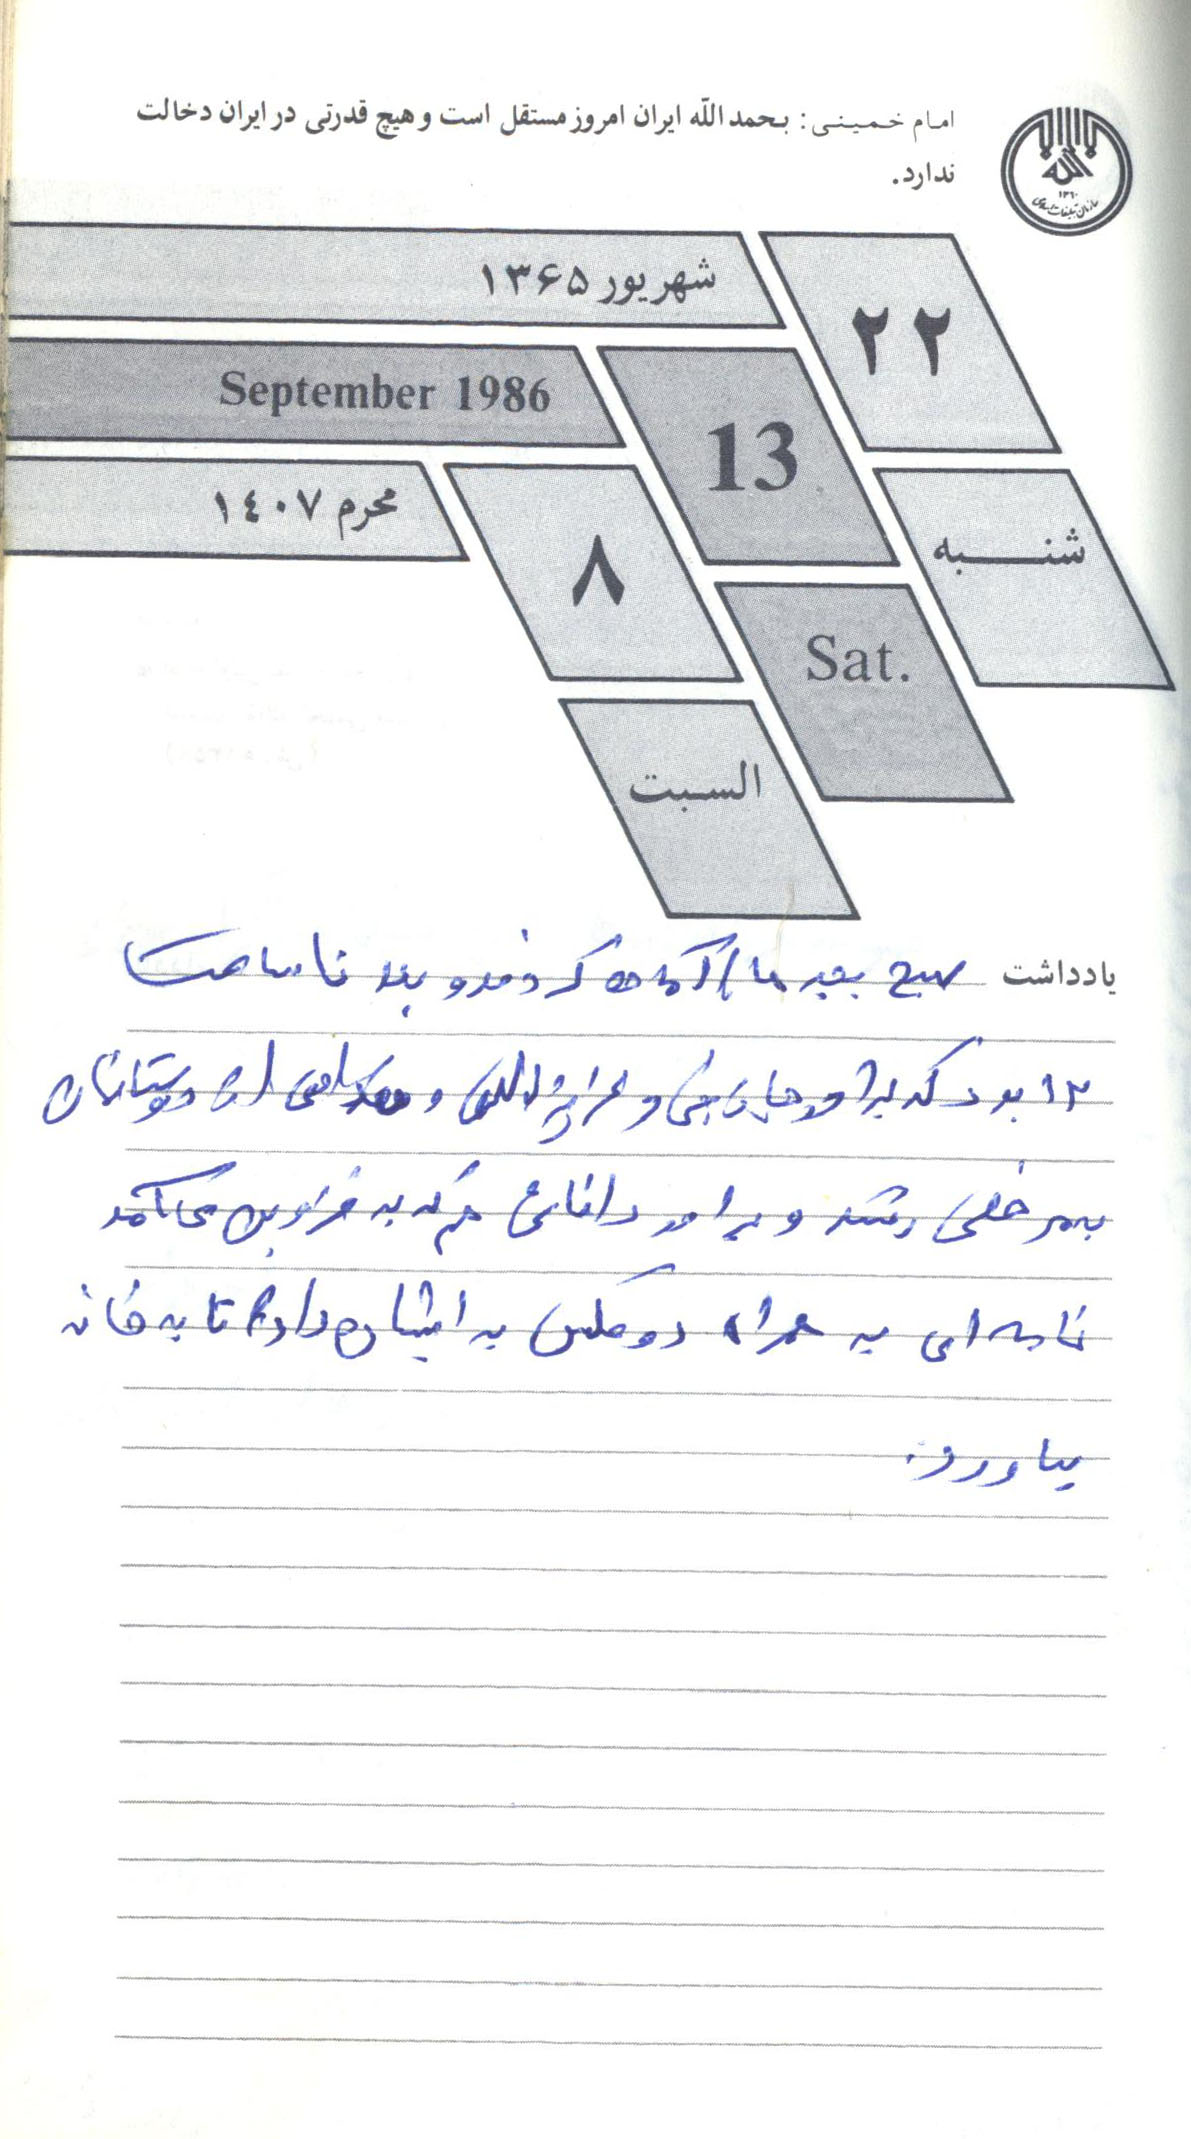 امام خمینی: بحمدالله ایران امروز مستقل است و هیچ قدرتی در ایران دخالت
ندارد.
۱۳۶۰
سازمان تبلیغات اسلامی
۲۲
شهریور ۱۳۶۵
13
September 1986
۸
محرم ۱۴۰۷
شنبه
Sat.
السبت
یادداشت صبح آماده کردند و بعد تا ساعت
۱۲ بود که برادر و دوستانشان
به مرخصی رفتند و برادر دانائی هم که به قزوین می‌آمد
نامه‌ای به همراه دو عکس به ایشان دادم تا به خانه
بیاورد.